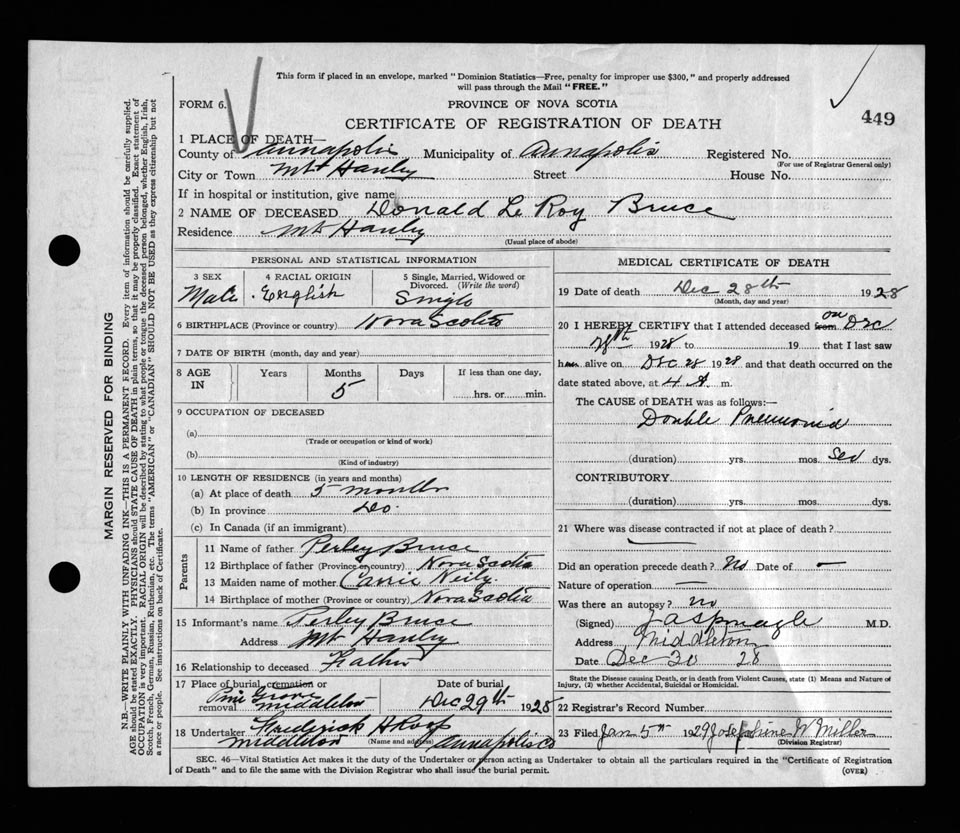 This form if placed in an envelope, marked "Dominion Statistics—Free, penalty for improper use $300," and properly addressed
will pass through the Mail "FREE."
FORM 6.
PROVINCE OF NOVA SCOTIA
CERTIFICATE OF REGISTRATION OF DEATH
449
1 PLACE OF DEATH—
County of Annapolis Municipality of Annapolis Registered No.
(For use of Registrar General only)
City or Town Mt Hanley Street House No.
If in hospital or institution, give name
2 NAME OF DECEASED Donald Le Roy Bruce
Residence Mt Hanley
(Usual place of abode)
PERSONAL AND STATISTICAL INFORMATION
3 SEX 4 RACIAL ORIGIN 5 Single, Married, Widowed or
Divorced. (Write the word)
Male English Single
6 BIRTHPLACE (Province or country) Nova Scotia
7 DATE OF BIRTH (month, day and year)
8 AGE Years Months Days If less than one day,
IN 5 hrs. or min.
9 OCCUPATION OF DECEASED
(a)
(Trade or occupation or kind of work)
(b)
(Kind of industry)
10 LENGTH OF RESIDENCE (in years and months)
(a) At place of death 5 months
(b) In province Do.
(c) In Canada (if an immigrant)
Parents
11 Name of father Perley Bruce
12 Birthplace of father (Province or country) Nova Scotia
13 Maiden name of mother Carrie Neily.
14 Birthplace of mother (Province or country) Nova Scotia
15 Informant's name Perley Bruce
Address Mt Hanley
16 Relationship to deceased Father
17 Place of burial, cremation or Date of burial
removal Pine Grove Middleton Dec 29th 1928
18 Undertaker Frederick
(Name and address)
Middleton Annapolis Co
MEDICAL CERTIFICATE OF DEATH
19 Date of death Dec 28th 1928
(Month, day and year)
20 I HEREBY CERTIFY that I attended deceased from on Dec
28th 1928 to 19 that I last saw
h alive on Dec 28 1928 and that death occurred on the
date stated above, at 4 A m.
The CAUSE of DEATH was as follows:—
Double Pneumonia
(duration) yrs. mos. dys.
CONTRIBUTORY
(duration) yrs. mos. dys.
21 Where was disease contracted if not at place of death?
Did an operation precede death? No Date of —
Nature of operation —
Was there an autopsy? no
(Signed) J A Sponagle M.D.
Address Middleton
Date Dec 30 28
State the Disease causing Death, or in death from Violent Causes, state (1) Means and Nature of
Injury, (2) whether Accidental, Suicidal or Homicidal.
22 Registrar's Record Number
23 Filed Jan 5th 1929 Josephine W Miller
(Division Registrar)
SEC. 46—Vital Statistics Act makes it the duty of the Undertaker or person acting as Undertaker to obtain all the particulars required in the "Certificate of Registration
of Death" and to file the same with the Division Registrar who shall issue the burial permit.
(OVER)
MARGIN RESERVED FOR BINDING
N.B.—WRITE PLAINLY WITH UNFADING INK—THIS IS A PERMANENT RECORD. Every item of information should be carefully supplied.
AGE should be stated EXACTLY. PHYSICIANS should STATE CAUSE OF DEATH in plain terms, so that it may be properly classified. Exact statement of
OCCUPATION is very important. RACIAL ORIGIN will be described by stating to what people or tongue the deceased person belonged, whether English, Irish,
Scotch, French, German, Russian, Ruthenian, etc. The terms "AMERICAN" or "CANADIAN" SHOULD NOT BE USED as they express citizenship but not
a race or people. See instructions on back of Certificate.